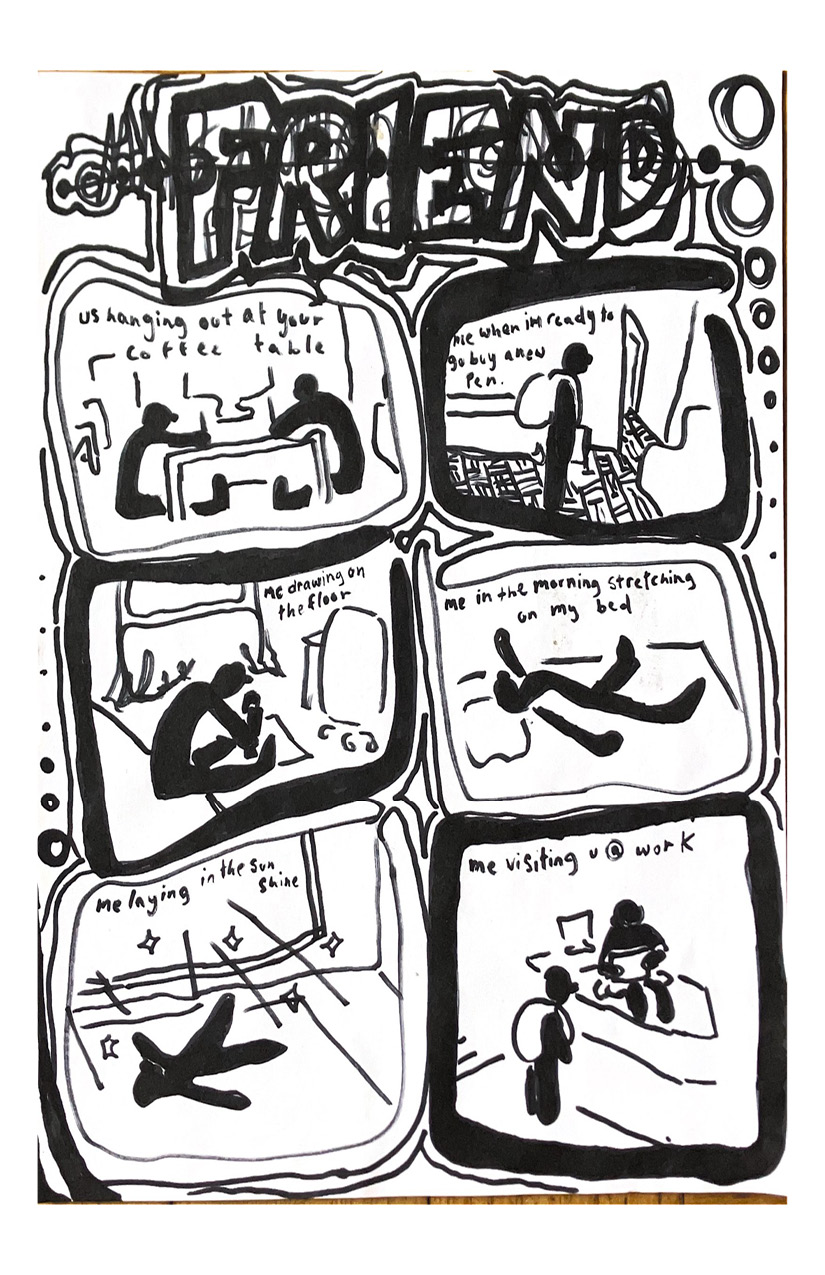 FRIEND
us hanging out at your
coffee table
me when im ready to
go buy a new
Pen.
me drawing on
the floor
me in the morning stretching
on my bed
me laying in the sun
shine
me visiting u @ work